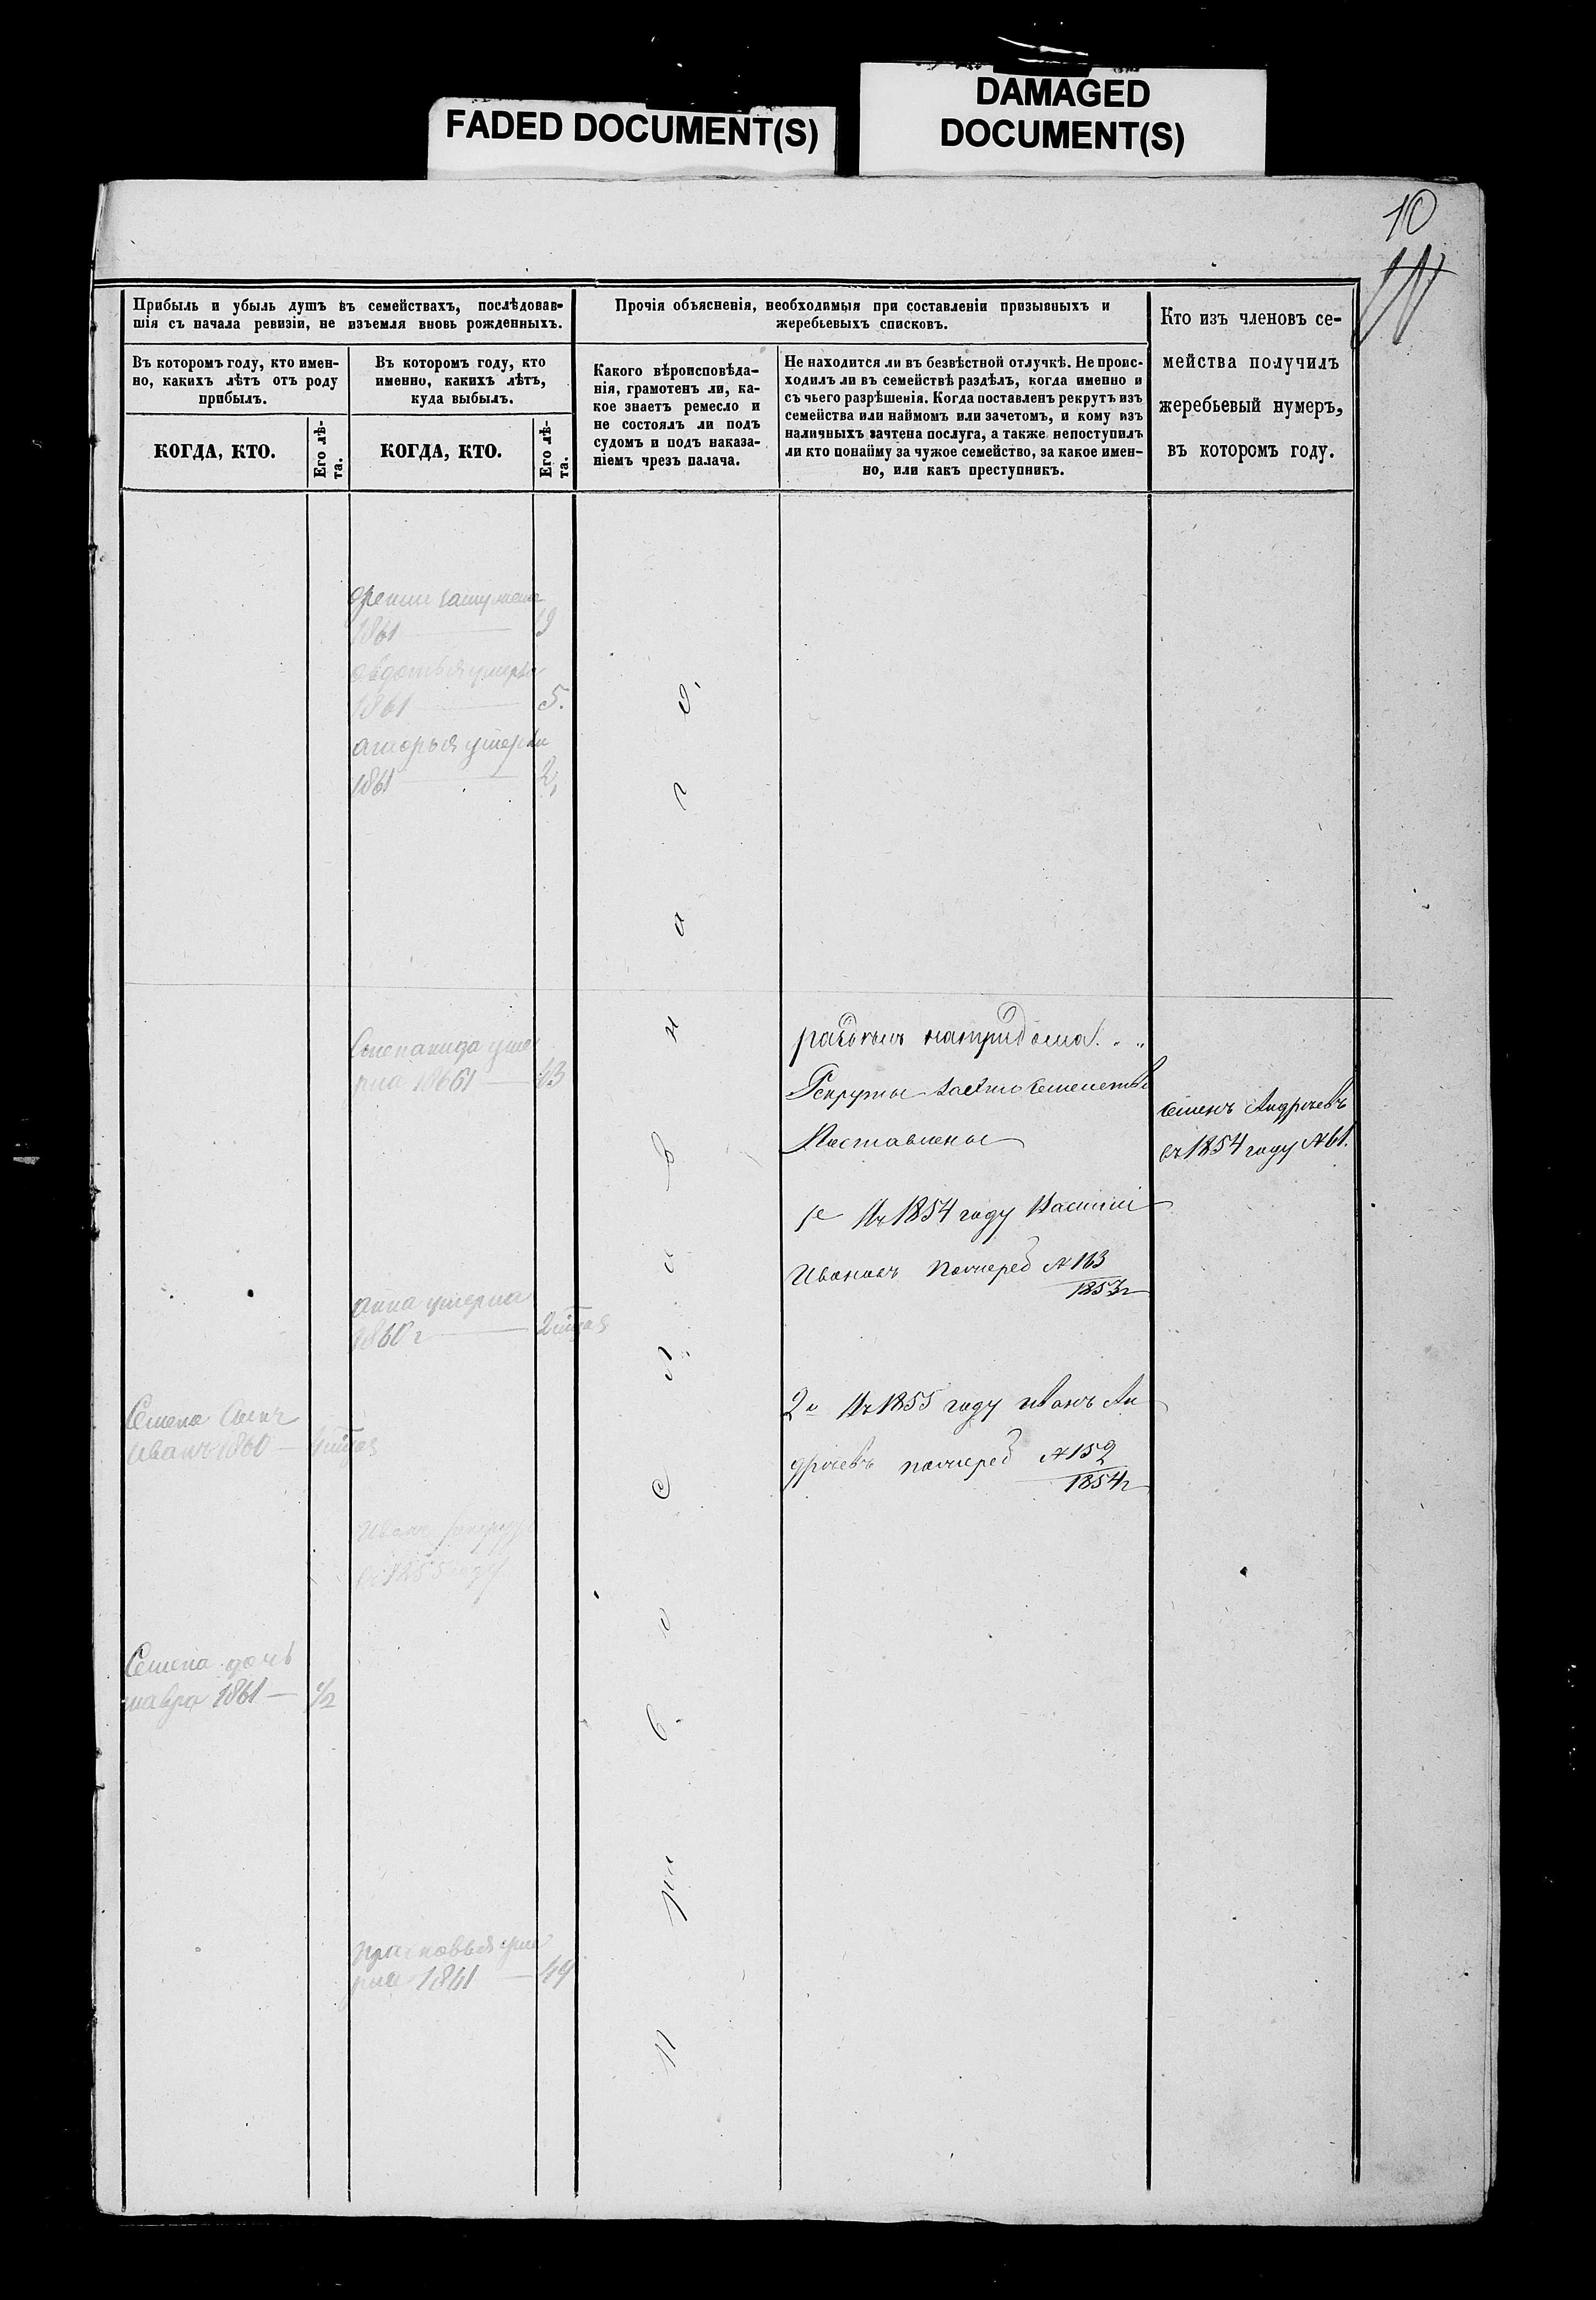 FADED DOCUMENT(S)
DAMAGED
DOCUMENT(S)
10
Прибыль и убыль душъ въ семействахъ, послѣдовав-
шія съ начала ревизіи, не изъемля вновь рожденныхъ.
Прочія объясненія, необходимыя при составленіи призывныхъ и
жеребьевыхъ списковъ.
Кто изъ членовъ се-
мейства получилъ
жеребьевый нумеръ,
въ которомъ году.
Въ которомъ году, кто имен-
но, какихъ лѣтъ отъ роду
прибылъ.
Въ которомъ году, кто
именно, какихъ лѣтъ,
куда выбылъ.
Какого вѣроисповѣда-
нія, грамотенъ ли, ка-
кое знаетъ ремесло и
не состоялъ ли подъ
судомъ и подъ наказа-
ніемъ чрезъ палача.
Не находится ли въ безвѣстной отлучкѣ. Не проис-
ходилъ ли въ семействѣ раздѣлъ, когда именно и
съ чьего разрѣшенія. Когда поставленъ рекрутъ изъ
семейства или наймомъ или зачетомъ, и кому изъ
наличныхъ зачтена послуга, а также непоступилъ
ли кто понайму за чужое семейство, за какое имен-
но, или какъ преступникъ.
КОГДА, КТО.
Его лѣ-
та.
КОГДА, КТО.
Его лѣ-
та.
1861 19
авдотья умерла
1861 5.
умерла
1861 2,
Православнаго
Степанида уме
рла 1861 43
Рекруты
Поставлены
Семенъ Андреевъ
въ 1854 году №61.
1е Въ 1854 году Василий
Ивановъ №163
1853 г
анна умерла
1860 г
2е Въ 1855 году иванъ Ан
дреевъ №152
1854 г
Семена сынъ
Иванъ 1860
Иванъ
1855 году
Семена дочь
мавра 1861 — 1/2
прасковья уме
рла 1861 — 44